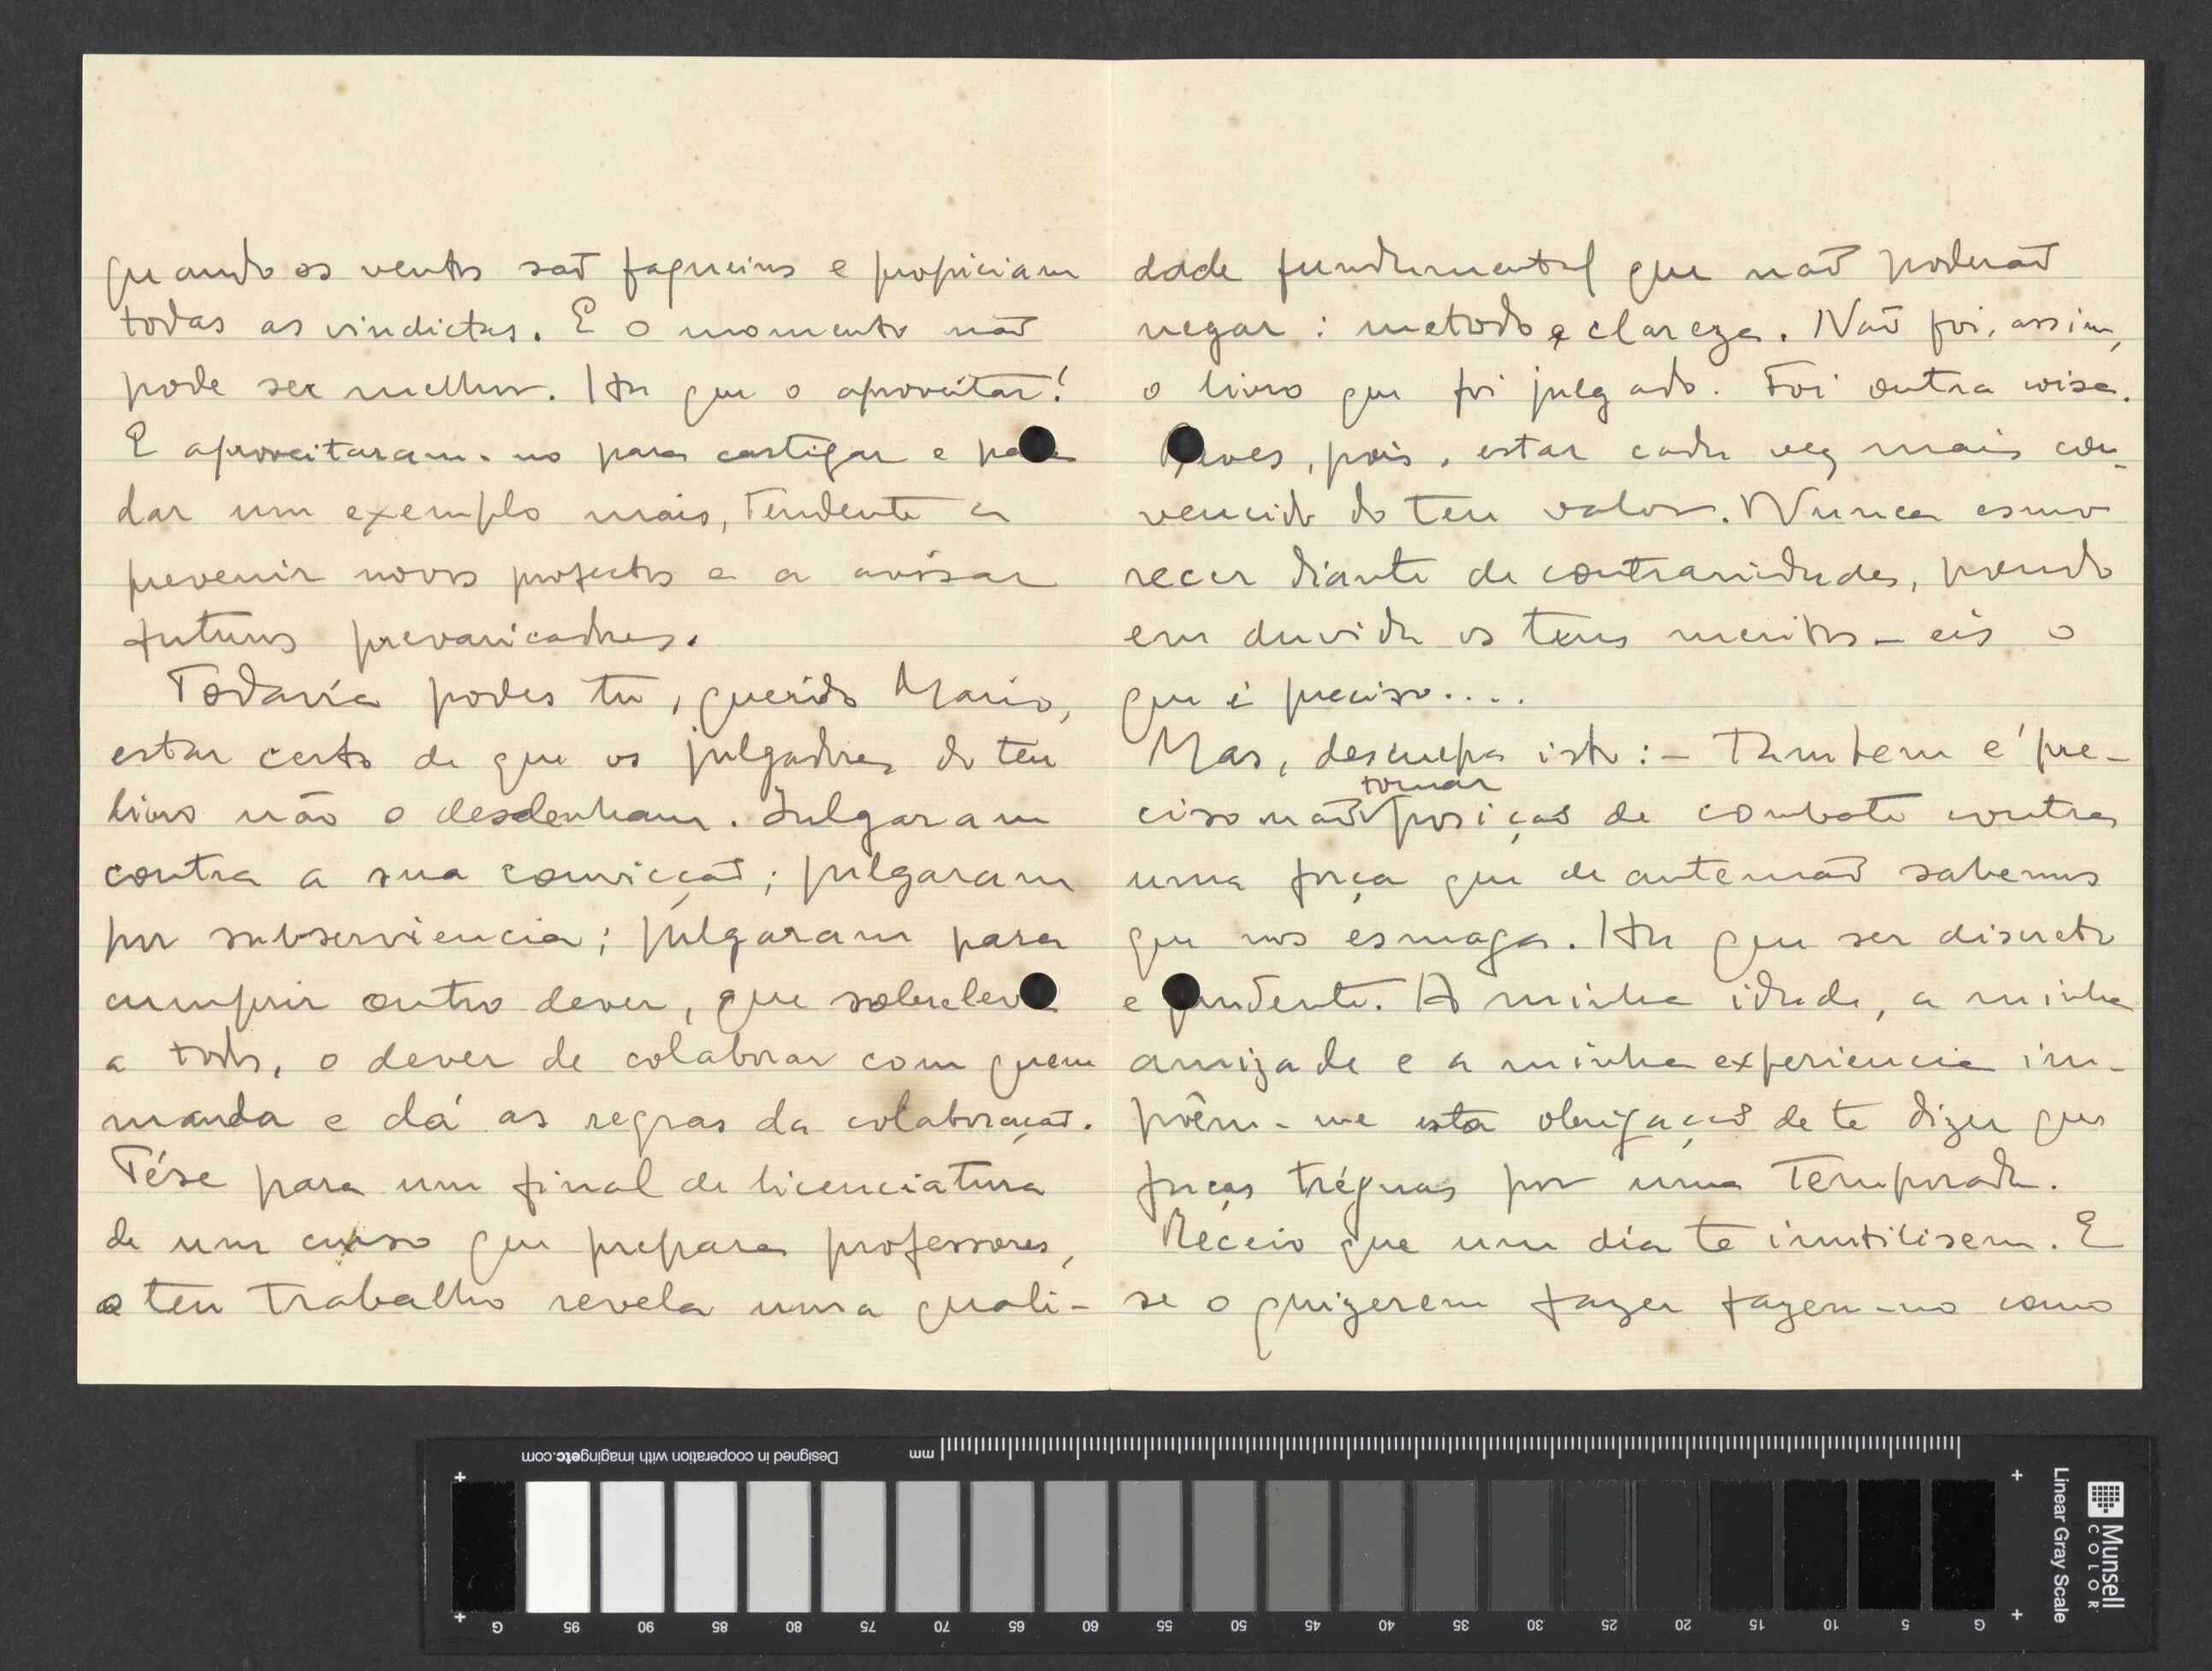 quando os ventos saõ fagueiros e propiciam
todas as vindictas. E o momento naõ
pode ser melhor. Ha que o aproveitar!
E aproveitaram-no para castigar e para
dar um exemplo mais, tendente a
prevenir novos projectos e a avisar
futuros prevaricadores.
Todavía podes tu, querido Mario,
estar certo de que os julgadores do teu
livro não o desdenham. Julgaram
contra a sua convicçaõ; julgaram
por subserviencia; julgaram para
cumprir outro dever, que sobreleva
a todos, o dever de colaborar com quem
manda e dá as regras da colaboraçaõ.
Tése para um final de licenciatura
de um curso que prepara professores,
o teu trabalho revela uma quali-
dade fundamental que naõ poderaõ
negar: metodo e clareza. Naõ foi, assim,
o livro que foi julgado. Foi outra coisa.
Deves, pois, estar cada vez mais con-
vencido do teu valor. Nunca esmo
recer diante de contrariedades, pondo
em duvida os teus meritos - eis o
que é preciso....
Mas, desculpa isto: - Tambem é pre-
ciso naõ tomar posiçaõ de combate contra
uma força que de antemaõ sabemos
que nos esmaga. Ha que ser discreto
e prudente. A minha idade, a minha
amizade e a minha experiencia im-
põem-me esta obrigaçaõ de te dizer que
faças tréguas por uma temporada.
Receio que um dia te inutilisem. E
se o quizerem fazer fazem-no como
mm
Designed in cooperation with imagingetc.com
G 95 90 85 80 75 70 65 60 55 50 45 40 35 30 25 20 15 10 5 G
Munsell
COLOR
Linear Gray Scale